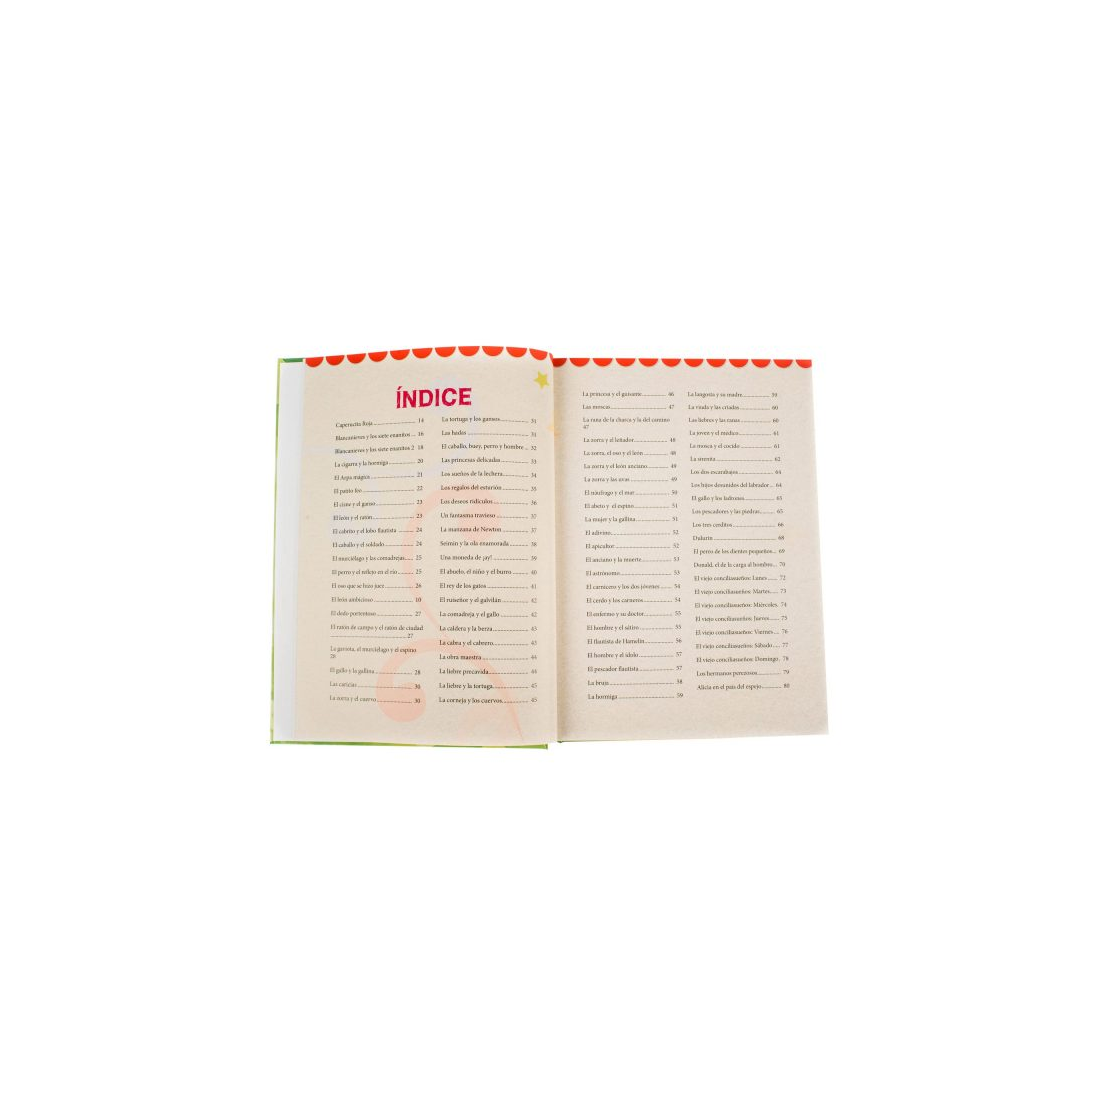 ÍNDICE
Caperucita Roja ........ 14
Blancanieves y los siete enanitos ... 16
Blancanieves y los siete enanitos 2 18
La cigarra y la hormiga ........ 20
El Arpa mágica ........ 21
El patito feo ........ 22
El cisne y el ganso ........ 23
El león y el ratón ........ 23
El cabrito y el lobo flautista ........ 24
El caballo y el soldado ........ 24
El murciélago y las comadrejas ..... 25
El perro y el reflejo en el río ........ 25
El oso que se hizo juez ........ 26
El león ambicioso ........ 10
El dedo portentoso ........ 27
El ratón de campo y el ratón de ciudad
........ 27
La gaviota, el murciélago y el espino
28
El gallo y la gallina ........ 28
Las caricias ........ 30
La zorra y el cuervo ........ 30
La tortuga y los gansos ........ 31
Las hadas ........ 31
El caballo, buey, perro y hombre ... 32
Las princesas delicadas ........ 33
Los sueños de la lechera ........ 34
Los regalos del esturión ........ 35
Los deseos ridículos ........ 36
Un fantasma travieso ........ 37
La manzana de Newton ........ 37
Seimin y la ola enamorada ........ 38
Una moneda de ¡ay! ........ 39
El abuelo, el niño y el burro ........ 40
El rey de los gatos ........ 41
El ruiseñor y el gavilán ........ 42
La comadreja y el gallo ........ 42
La caldera y la berza ........ 43
La cabra y el cabrero ........ 43
La obra maestra ........ 44
La liebre precavida ........ 44
La liebre y la tortuga ........ 45
La corneja y los cuervos ........ 45
La princesa y el guisante ........ 46
Las moscas ........ 47
La rana de la charca y la del camino
47
La zorra y el leñador ........ 48
La zorra, el oso y el león ........ 48
La zorra y el león anciano ........ 49
La zorra y las uvas ........ 49
El náufrago y el mar ........ 50
El abeto y el espino ........ 51
La mujer y la gallina ........ 51
El adivino ........ 52
El apicultor ........ 52
El anciano y la muerte ........ 53
El astrónomo ........ 53
El carnicero y los dos jóvenes ........ 54
El cerdo y los carneros ........ 54
El enfermo y su doctor ........ 55
El hombre y el sátiro ........ 55
El flautista de Hamelín ........ 56
El hombre y el ídolo ........ 57
El pescador flautista ........ 57
La bruja ........ 58
La hormiga ........ 59
La langosta y su madre ........ 59
La viuda y las criadas ........ 60
Las liebres y las ranas ........ 60
La joven y el médico ........ 61
La mosca y el cocido ........ 61
La sirenita ........ 62
Los dos escarabajos ........ 64
Los hijos desunidos del labrador .. 64
El gallo y los ladrones ........ 65
Los pescadores y las piedras ........ 65
Los tres cerditos ........ 66
Dulurín ........ 68
El perro de los dientes pequeños ... 69
Donald, el de la carga al hombro ... 70
El viejo conciliasueños: Lunes ..... 72
El viejo conciliasueños: Martes ..... 73
El viejo conciliasueños: Miércoles. 74
El viejo conciliasueños: Jueves ..... 75
El viejo conciliasueños: Viernes .... 76
El viejo conciliasueños: Sábado ..... 77
El viejo conciliasueños: Domingo. 78
Los hermanos perezosos ........ 79
Alicia en el país del espejo ........ 80